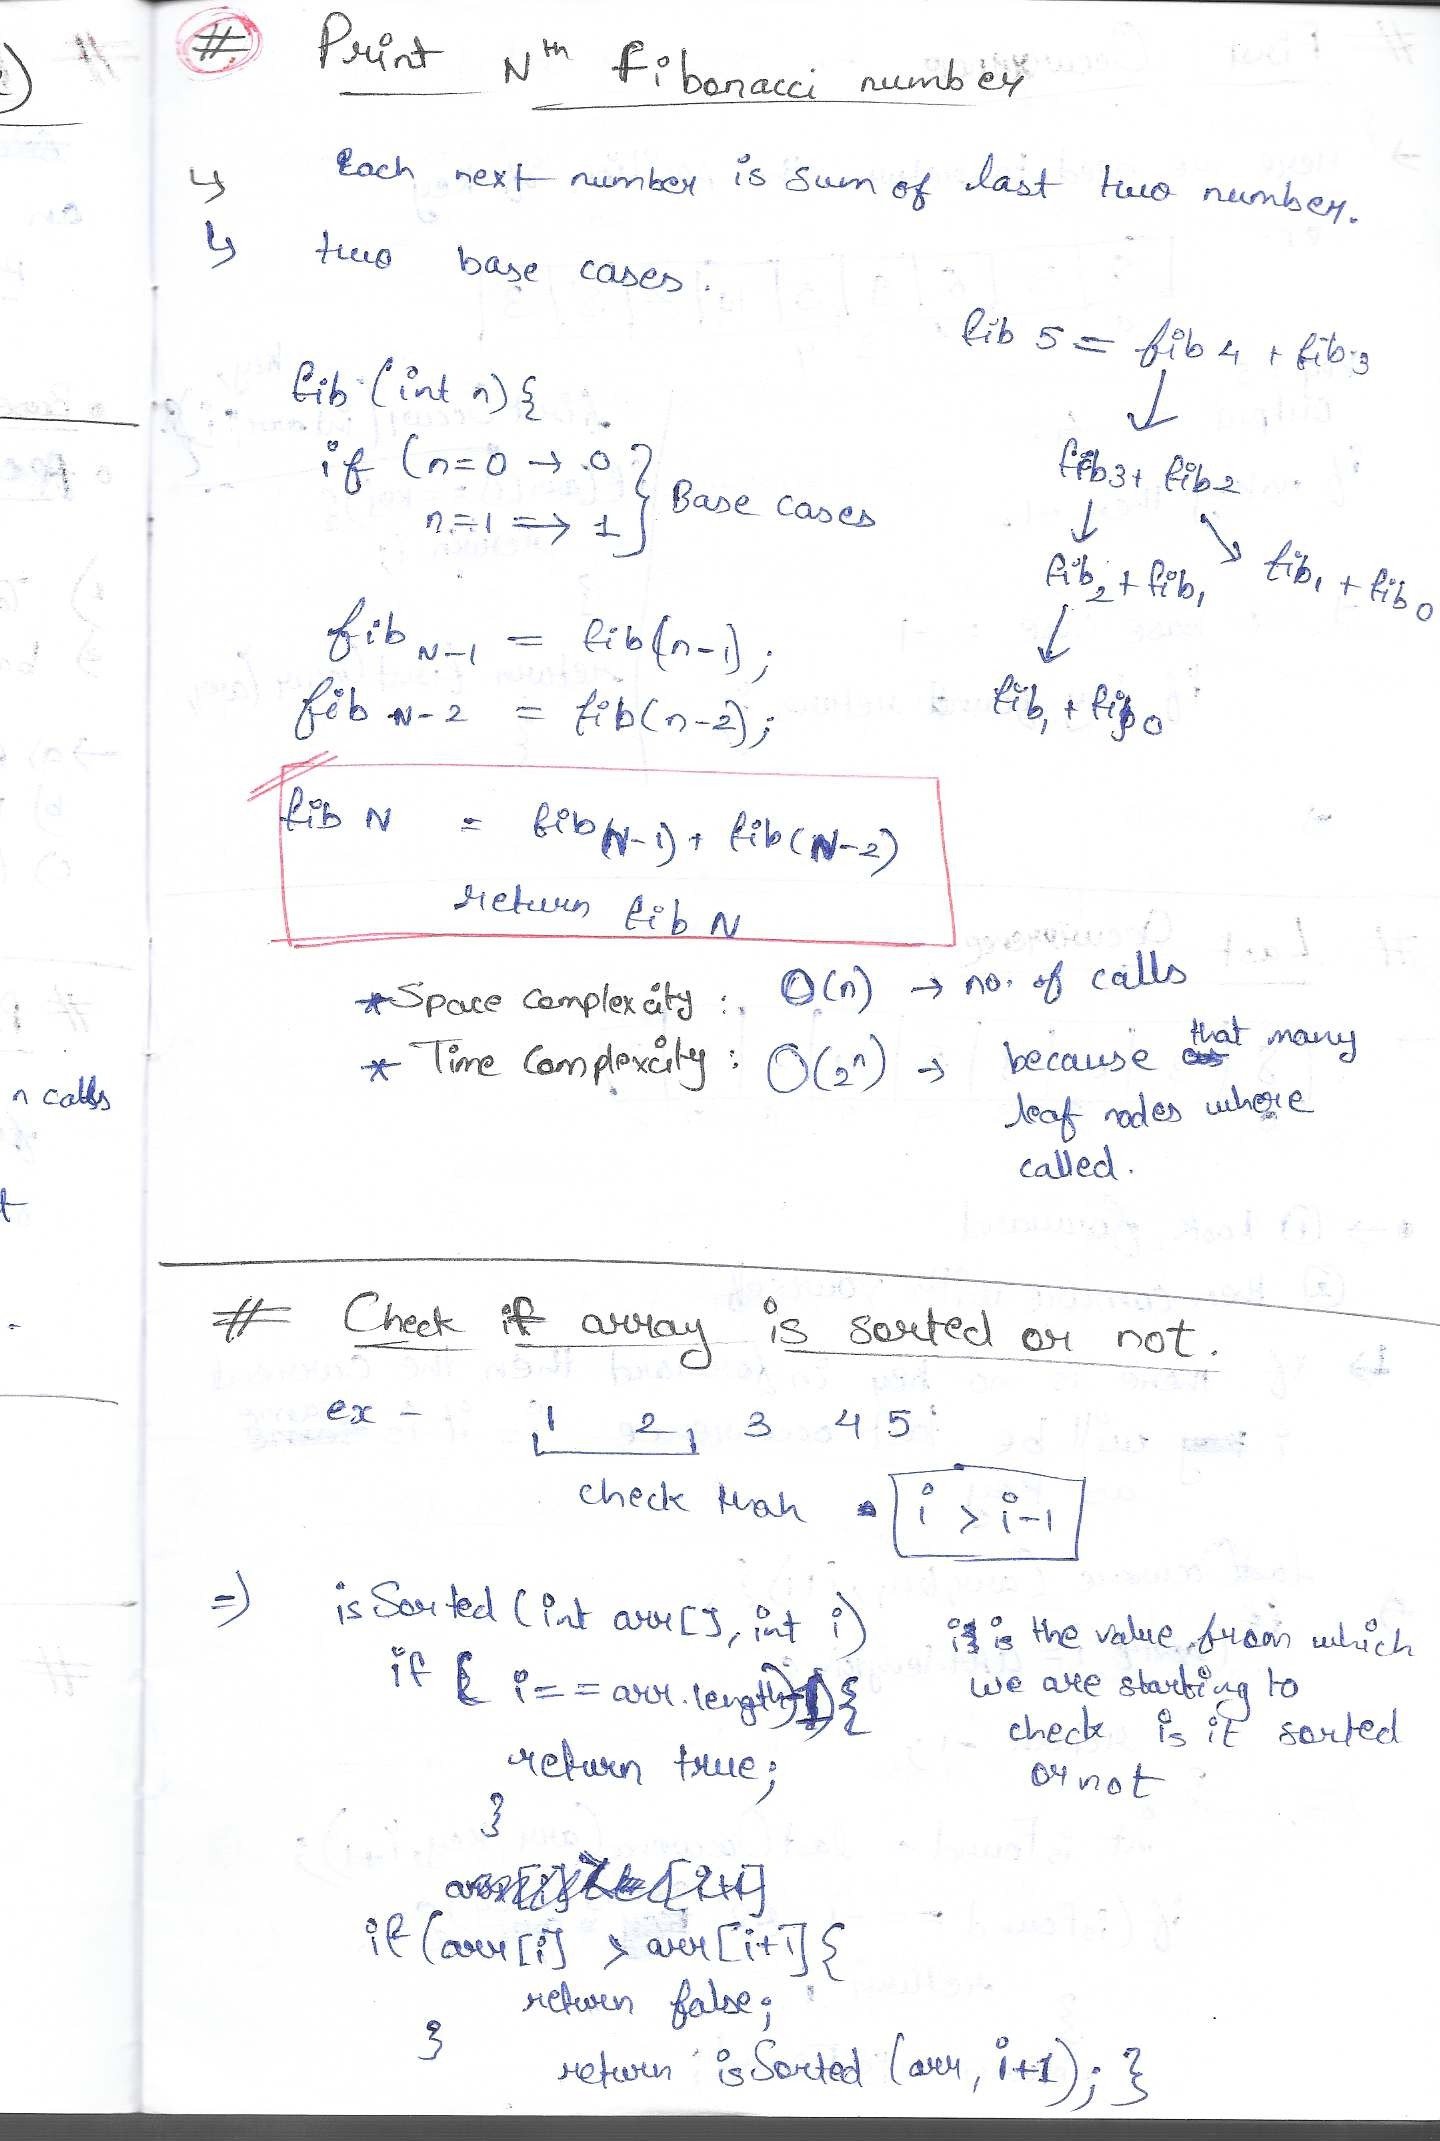 # Print Nth Fibonacci number
↳ Each next number is sum of last two number.
↳ two base cases.
fib 5 = fib 4 + fib 3
fib 3 + fib 2
fib 2 + fib 1
fib 1 + fib 0
fib 1 + fib 0
fib (int n) {
if (n=0 → 0
n=1 => 1
} Base cases
fib N-1 = fib(n-1);
fib N-2 = fib(n-2);
fib N = fib(N-1) + fib(N-2)
return fib N
* Space Complexcity : O(n) → no. of calls
* Time Complexcity : O(2^n) → because that many
leaf nodes where
called.
n calls
t
# Check if array is sorted or not.
ex - 1 2 3 4 5
check than i > i-1
=> isSorted (int arr[], int i)
if ( i == arr.length-1) {
return true;
}
if (arr[i] > arr[i+1] {
return false;
}
return isSorted (arr, i+1); }
i is the value from which
we are starting to
check is it sorted
or not